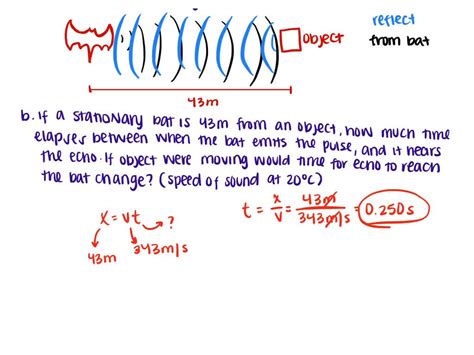 reflect
object from bat
43m
b. If a stationary bat is 43m from an object, how much time
elapses between when the bat emits the pulse, and it hears
the echo. If object were moving would time for echo to reach
the bat change? (speed of sound at 20°C)
x = vt → ? t = x/v = 43m/343m/s = 0.250s
43m 343m/s